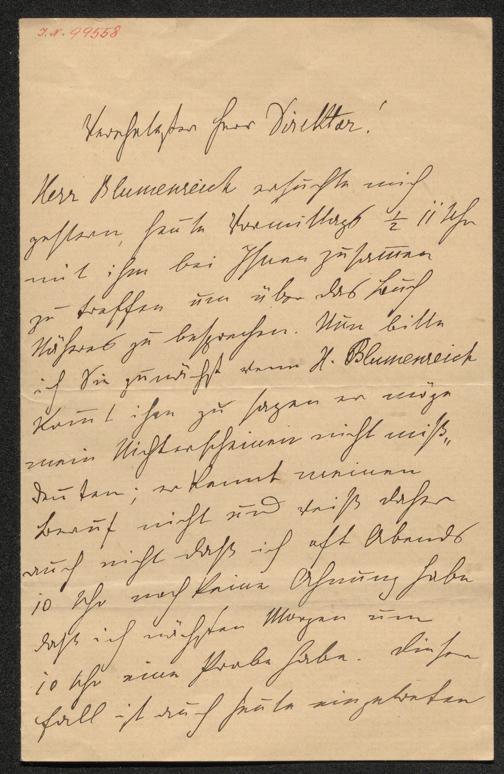 I.N. 99558
Verehrtester Herr Direktor!
Herr Blumenreich ersuchte mich
gestern, heute Vormittags ½ 11 Uhr
mit ihm bei Ihnen zusammen
zu treffen um über das Buch
Näheres zu besprechen. Nun bitte
ich Sie zunächst wenn H. Blumenreich
kommt ihm zu sagen er möge
mein Nichterscheinen nicht miß„
deuten, er kennt meinen
Beruf nicht und weiß daher
auch nicht daß ich oft Abends
10 Uhr noch keine Ahnung habe
daß ich nächsten Morgen um
10 Uhr eine Probe habe. Dieser
Fall ist auch heute eingetreten